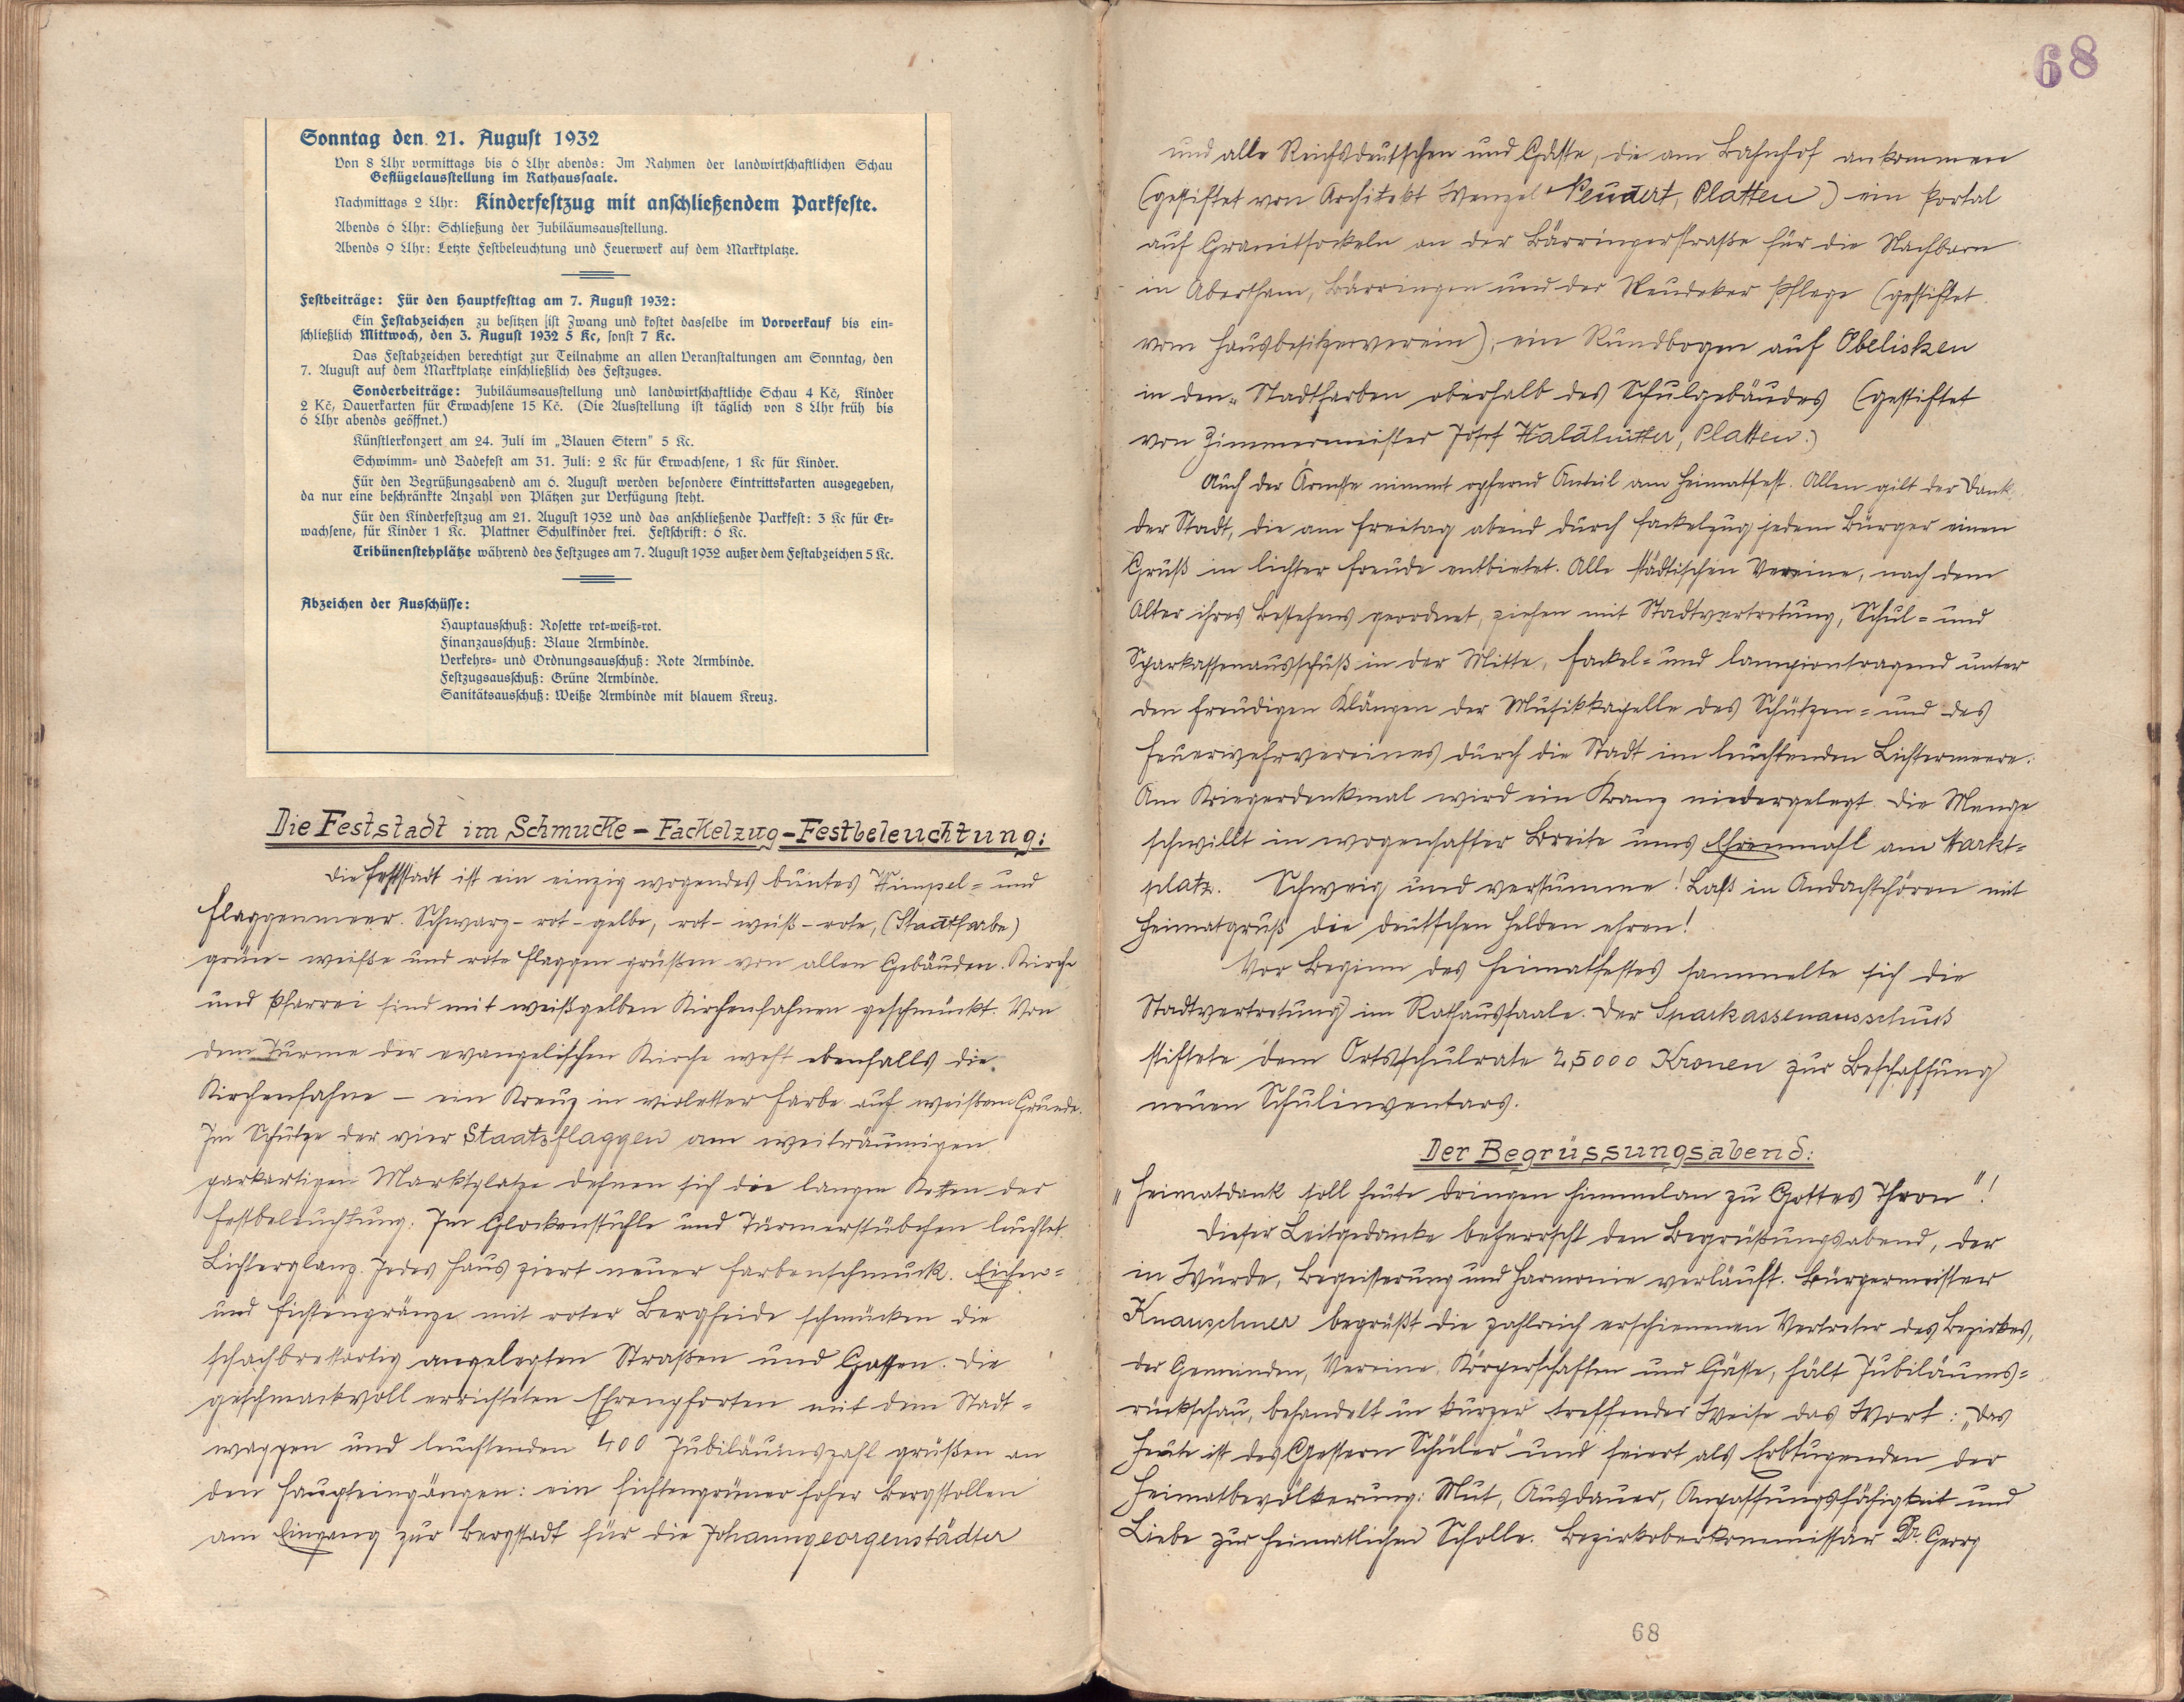 Sonntag den 21. August 1932
Von 8 Uhr vormittags bis 6 Uhr abends: Im Rahmen der landwirtschaftlichen Schau
Geflügelausstellung im Rathaussaale.
Nachmittags 2 Uhr: Kinderfestzug mit anschließendem Parkfeste.
Abends 6 Uhr: Schließung der Jubiläumsausstellung.
Abends 9 Uhr: Letzte Festbeleuchtung und Feuerwerk auf dem Marktplatze.
Festbeiträge: Für den Hauptfesttag am 7. August 1932:
Ein Festabzeichen zu besitzen ist Zwang und kostet dasselbe im Vorverkauf bis ein-
schließlich Mittwoch, den 3. August 1932 5 Kc, sonst 7 Kc.
Das Festabzeichen berechtigt zur Teilnahme an allen Veranstaltungen am Sonntag, den
7. August auf dem Marktplatze einschließlich des Festzuges.
Sonderbeiträge: Jubiläumsausstellung und landwirtschaftliche Schau 4 Kč, Kinder
2 Kč, Dauerkarten für Erwachsene 15 Kč. (Die Ausstellung ist täglich von 8 Uhr früh bis
6 Uhr abends geöffnet.)
Künstlerkonzert am 24. Juli im „Blauen Stern" 5 Kc.
Schwimm- und Badefest am 31. Juli: 2 Kc für Erwachsene, 1 Kc für Kinder.
Für den Begrüßungsabend am 6. August werden besondere Eintrittskarten ausgegeben,
da nur eine beschränkte Anzahl von Plätzen zur Verfügung steht.
Für den Kinderfestzug am 21. August 1932 und das anschließende Parkfest: 3 Kc für Er-
wachsene, für Kinder 1 Kc. Plattner Schulkinder frei. Festschrift: 6 Kc.
Tribünenstehplätze während des Festzuges am 7. August 1932 außer dem Festabzeichen 5 Kc.
Abzeichen der Ausschüsse:
Hauptausschuß: Rosette rot-weiß-rot.
Finanzausschuß: Blaue Armbinde.
Verkehrs- und Ordnungsausschuß: Rote Armbinde.
Festzugsausschuß: Grüne Armbinde.
Sanitätsausschuß: Weiße Armbinde mit blauem Kreuz.
Die Feststadt im Schmucke - Fackelzug - Festbeleuchtung:
Die Feststadt ist ein einzig wogendes buntes Wimpel= und
Flaggenmeer. Schwarz-rot-gelbe, rot-weiß-rote, (Stadtfarbe)
grün-weiße und rote Flaggen grüßen von allen Gebäuden. Kirche
und Pfarrei sind mit weißgelben Kirchenfahnen geschmückt. Von
dem Turme der evangelischen Kirche weht ebenfalls die
Kirchenfahne – ein Kreuz in violetter Farbe auf weißem Grunde.
Im Schutze der vier Staatsflaggen am weiträumigen
parkartigen Marktplatze dehnen sich die langen Ketten der
Festbeleuchtung. Im Glockenstuhle und Türmerstübchen leuchtet
Lichterglanz. Jedes Haus ziert neuer Farbenschmuck. Eichen=
und Fichtengränze mit roter Bergheide schmücken die
schachbrettartig angelegten Straßen und Gassen. Die
geschmackvoll errichteten Ehrenpforten mit dem Stadt=
wappen und leuchtenden 400 Jubiläumszahl grüßen an
den Haupteingängen: ein fichtengrüner hoher Bergstollen
am Eingang zur Bergstadt für die Johanngeorgenstädter
68
und alle Reichsdeutschen und Gäste, die am Bahnhof ankommen
(gestiftet von Architekt Wenzel Peudert, Platten) ein Portal
auf Granitsockeln an der Bärringerstraße für die Nachbarn
in Abertham, Bärringen und der Neudeker Pflege (gestiftet
vom Hausbesitzerverein), ein Rundbogen auf Obelisken
in den Stadtfarben oberhalb des Schulgebäudes (gestiftet
von Zimmermeister Josef Kaláhütter, Platten.)
Auch der Ärmste nimmt opfernd Anteil am Heimatfest. Allen gilt der Dank
der Stadt, die am Freitag abend durch Fackelzug jedem Bürger einen
Gruß in lichter Freude entbietet. Alle städtischen Vereine, nach dem
Alter ihres Bestehens geordnet, ziehen mit Stadtvertretung, Schul= und
Sparkassenausschuß in der Mitte, fackel= und lampiontragend unter
den freudigen Klängen der Musikkapelle des Schützen= und des
Feuerwehrvereines durch die Stadt im leuchtenden Lichtermeere.
Am Kriegerdenkmal wird ein Kranz niedergelegt. Die Menge
schwillt in wogenhafter Breite ums Ehrenmahl am Markt=
platz. Schweig und verstumme! Laßt in Andachtchören mit
Heimatgruß die deutschen Helden ehren!
Vor Beginn des Heimatfestes sammelte sich die
Stadtvertretung im Rathaussaale. Der Sparkassenausschuß
stiftete dem Ortsschulrate 25000 Kronen zur Beschaffung
neuen Schulinventars.
Der Begrüssungsabend:
„Heimatdank soll heute dringen himmelan zu Gottes Thron"!
Dieser Leitgedanke beherrscht den Begrüßungsabend, der
in Würde, Begeisterung und Harmonie verläuft. Bürgermeister
Knauschner begrüßt die zahlreich erschienenen Vertreter des Bezirkes,
der Gemeinden, Vereine, Körperschaften und Gäste, hält Jubiläums=
rückschau, behandelt in kurzer treffender Weise das Wort: „Das
Heute ist des Gestern Schüler" und feiert als Erbtugenden der
Heimatbevölkerung: Mut, Ausdauer, Anpassungsfähigkeit und
Liebe zur heimatlichen Scholle. Bezirksoberkommissär Dr. Georg
68